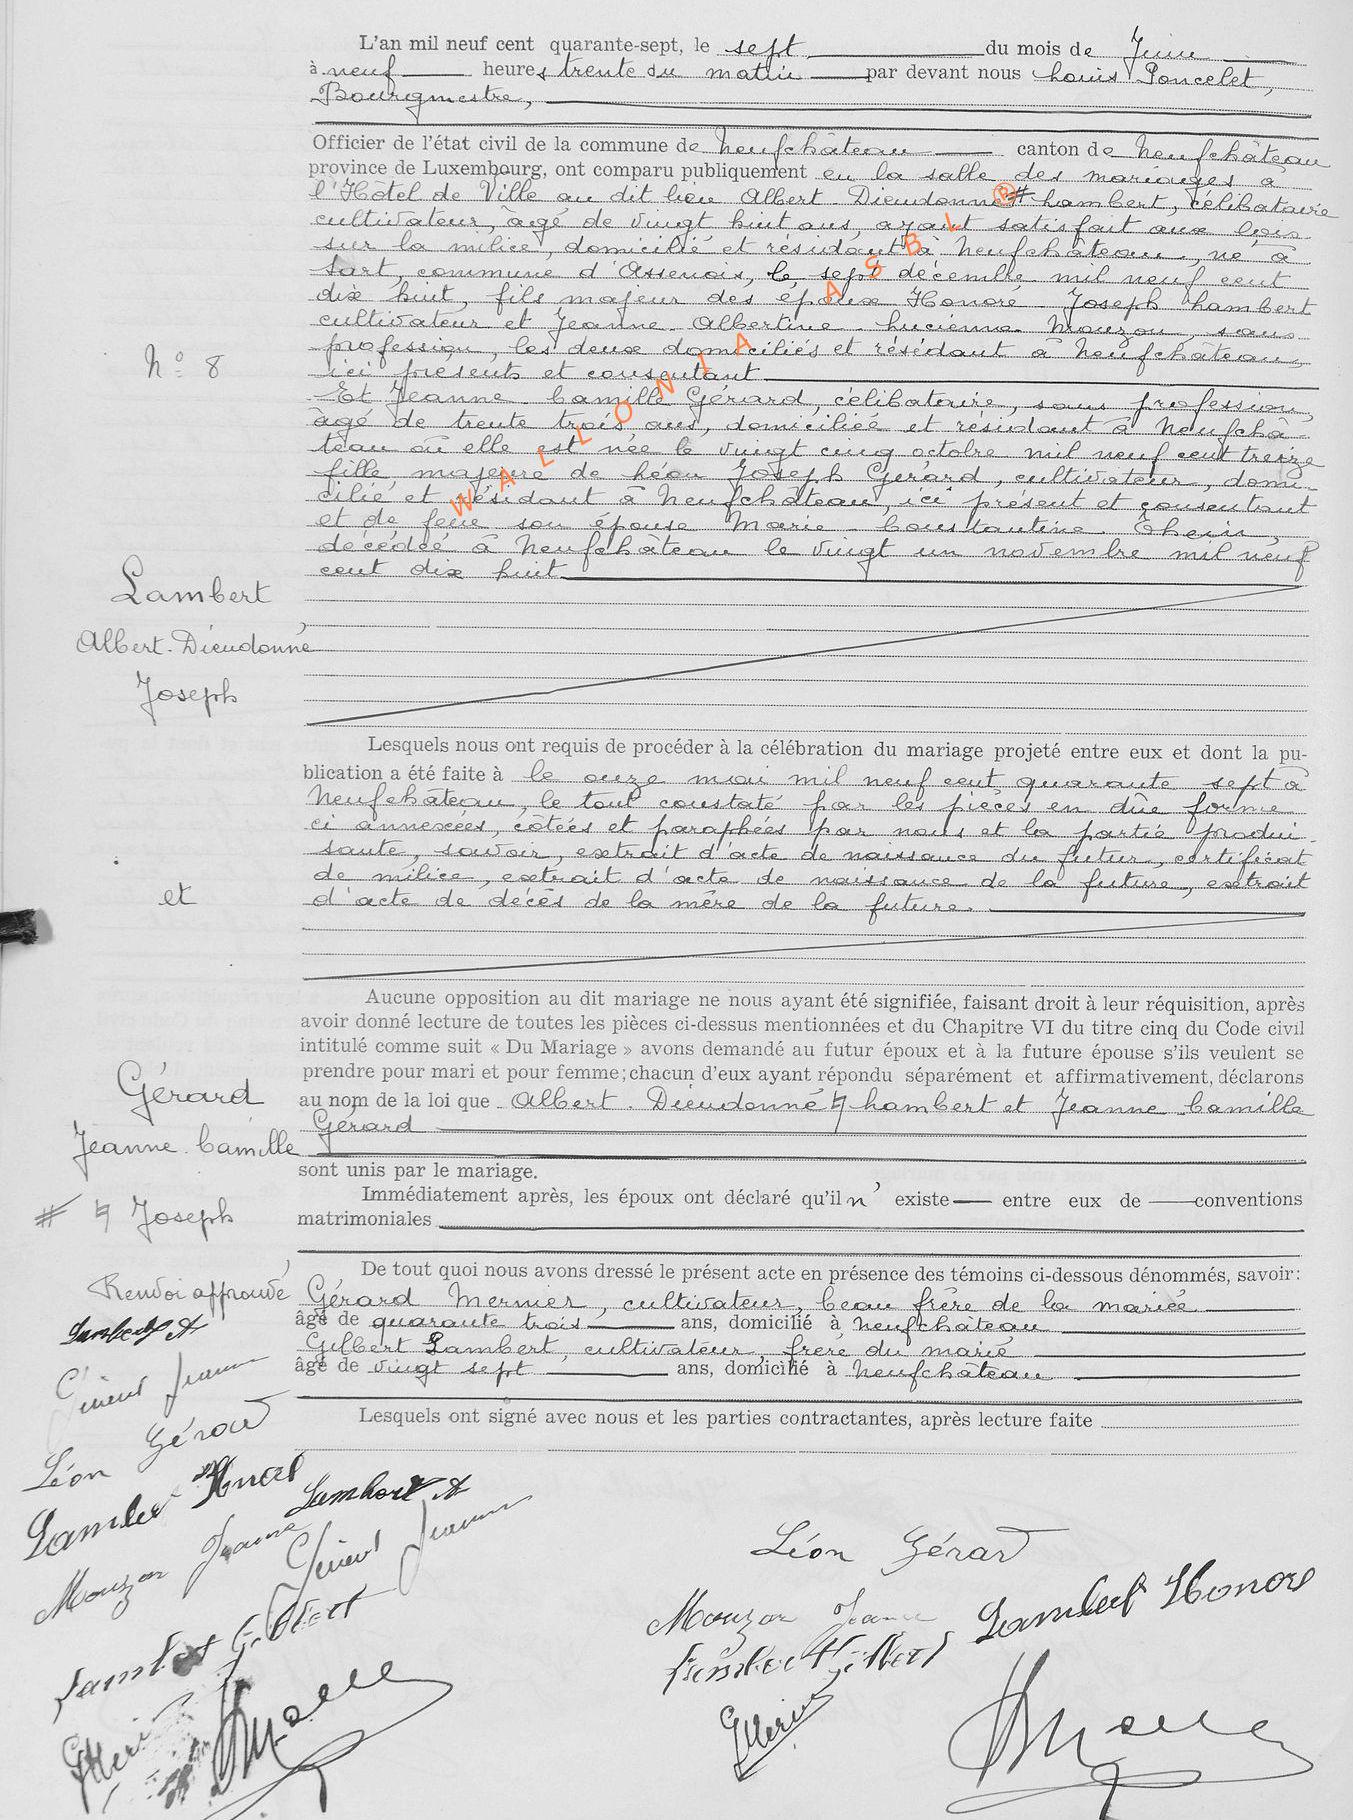 L'an mil neuf cent quarante-sept, le sept du mois de Juin
à neuf heures trente du matin par devant nous Louis Poncelet,
Bourgmestre,
Officier de l'état civil de la commune de Neufchâteau canton de Neufchâteau
province de Luxembourg, ont comparu publiquement en la salle des mariages à
l'Hôtel de Ville au dit lieu Albert-Dieudonné # Lambert, célibataire
cultivateur, âgé de vingt huit ans, ayant satisfait aux lois
sur la milice, domicilié et résidant à Neufchâteau, né à
Sart, commune d'Assenois, le sept décembre mil neuf cent
dix huit, fils majeur des époux Honoré-Joseph Lambert
cultivateur et Jeanne-Albertine-Lucienne Mouzon, sans
profession, les deux domiciliés et résidant à Neufchâteau,
ici présents et consentant
N° 8
Et Jeanne-Camille Gérard, célibataire, sans profession,
âgé de trente trois ans, domiciliée et résidant à Neufchâ-
teau où elle est née le vingt cinq octobre mil neuf cent treize
fille majeure de Léon Joseph Gérard, cultivateur, domi-
cilié et résidant à Neufchâteau, ici présent et consentant
et de feue son épouse Marie-Constantine
décédée à Neufchâteau le vingt un novembre mil neuf
cent dix huit
WALLONIA ASBL ®
Lambert
Albert-Dieudonné
Joseph
Lesquels nous ont requis de procéder à la célébration du mariage projeté entre eux et dont la pu-
blication a été faite à le onze mai mil neuf cent quarante sept à
Neufchâteau, le tout constaté par les pièces en dûe forme
ci annexées, côtées et paraphées par nous et la partie produi-
sante, savoir, extrait d'acte de naissance du futur, certificat
de milice, extrait d'acte de naissance de la future, extrait
d'acte de décès de la mère de la future.
et
Aucune opposition au dit mariage ne nous ayant été signifiée, faisant droit à leur réquisition, après
avoir donné lecture de toutes les pièces ci-dessus mentionnées et du Chapitre VI du titre cinq du Code civil
intitulé comme suit « Du Mariage » avons demandé au futur époux et à la future épouse s'ils veulent se
prendre pour mari et pour femme; chacun d'eux ayant répondu séparément et affirmativement, déclarons
au nom de la loi que Albert-Dieudonné Lambert et Jeanne-Camille
Gérard
Gérard
Jeanne-Camille
sont unis par le mariage.
Immédiatement après, les époux ont déclaré qu'il n'existe entre eux de conventions
matrimoniales
# Joseph
De tout quoi nous avons dressé le présent acte en présence des témoins ci-dessous dénommés, savoir:
Gérard Mernier, cultivateur, beau frère de la mariée
âgé de quarante trois ans, domicilié à Neufchâteau
Gilbert Lambert, cultivateur, frère du marié
âgé de vingt sept ans, domicilié à Neufchâteau
Lesquels ont signé avec nous et les parties contractantes, après lecture faite
Renvoi approuvé
Lambert A
Gérard Jeanne
Léon Gérard
Lambert Honoré
Mouzon Jeanne
Lambert A
Gérard Jeanne
Lambert Gilbert
Léon Gérard
Mouzon Jeanne
Lambert Honoré
Lambert Gilbert